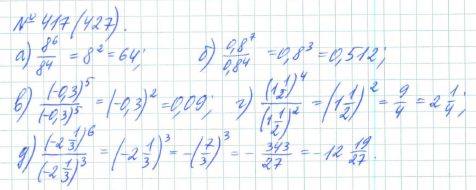 № 417 (427).
а) 8⁶/84 = 8² = 64; б) 0,8⁷/0,84 = 0,8³ = 0,512;
в) (-0,3)⁵/(-0,3)⁵ = (-0,3)² = 0,09; г) (1 1/2)⁴/(1 1/2)² = (1 1/2)² = 9/4 = 2 1/4;
д) (-2 1/3)⁶/(-2 1/3)³ = (-2 1/3)³ = -(7/3)³ = - 343/27 = -12 19/27.